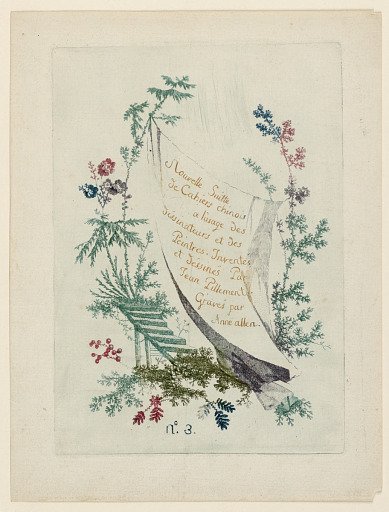 Nouvelle Suitte
de Cahiers chinois
a l'usage des
dessinateurs et des
Peintres. Inventés
et dessinés Par
Jean Pillement
Gravés par
Anne allen.
n.º 3.